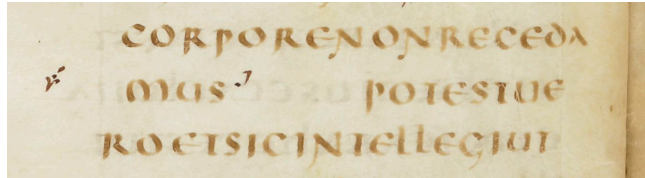 CORPORENONRECEDA
MUS POTESTUE
ROETSICINTELLEGIUT